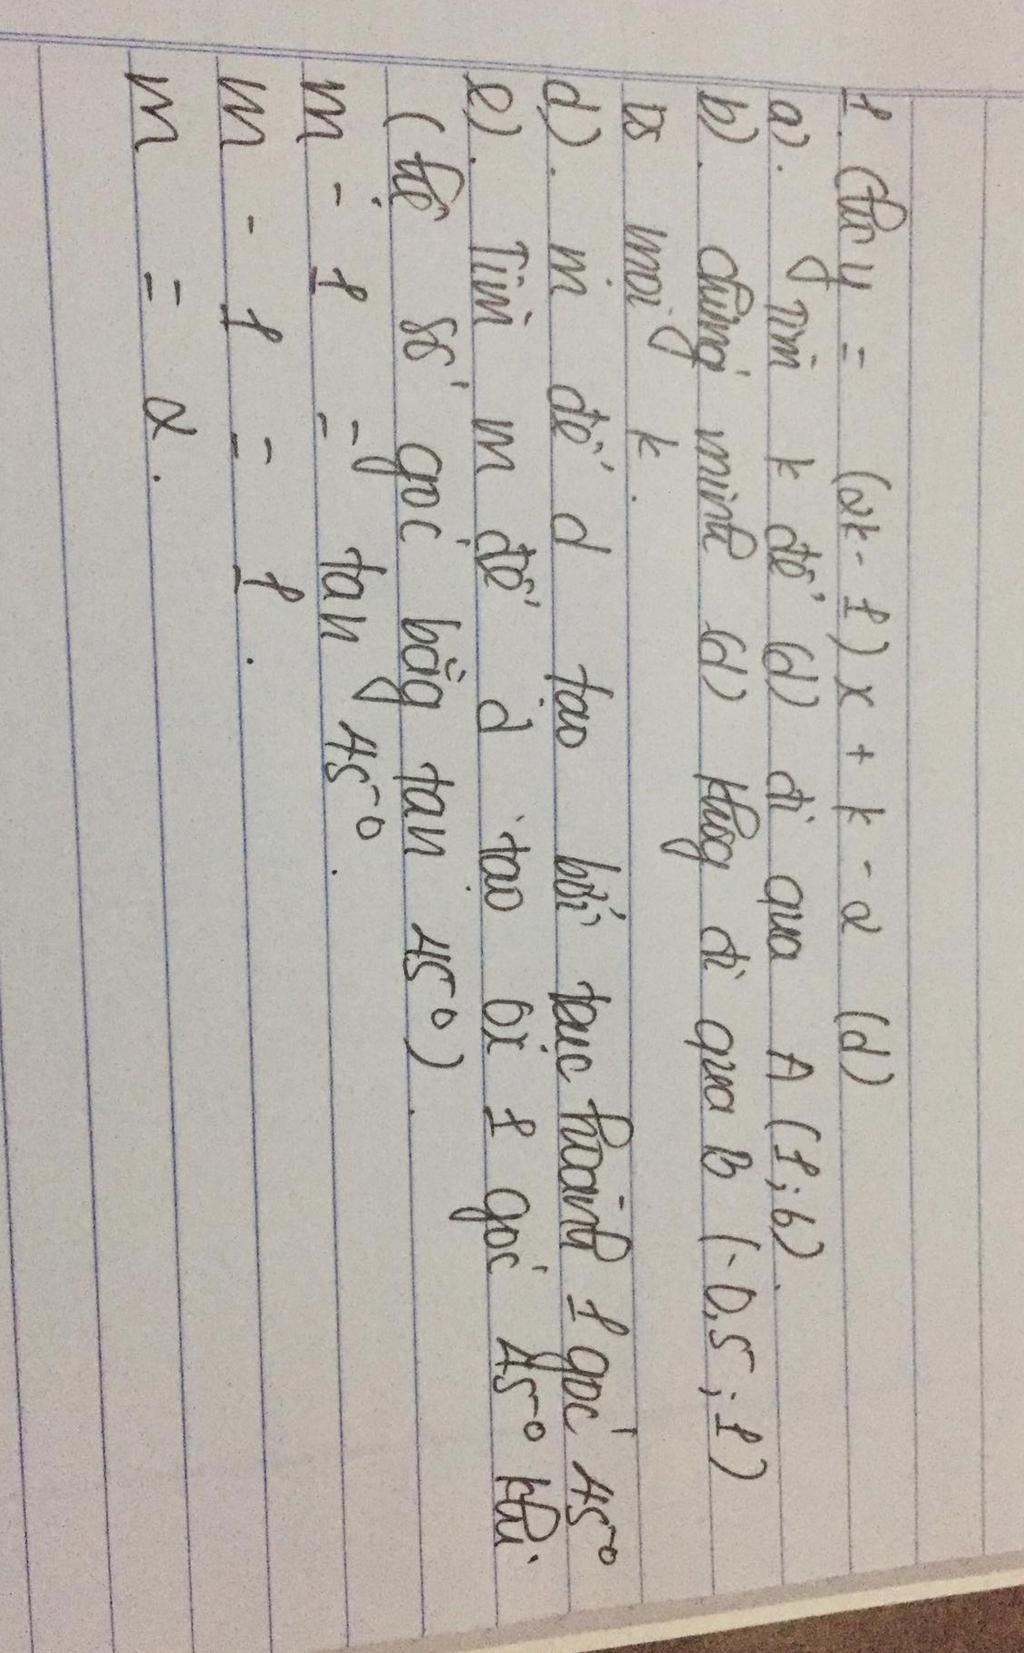 1. Cho y = (2k - 1) x + k - 2 (d)
a). Tìm k để (d) đi qua A (1; 6).
b). chứng minh (d) khôg đi qua B (-0,5 ; 1)
vs mọi k.
d). m để d tạo bởi trục hoành 1 góc 45°
e). Tìm m để d tạo ox 1 góc 45° khi
(hệ số góc bằg tan 45°).
m - 1 = tan 45°.
m - 1 = 1.
m = 2.